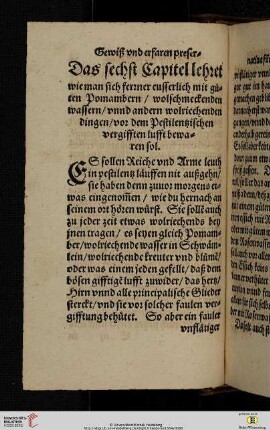 Gewiß vnd erfaren preser-
Das sechst Capitel lehret
wie man sich ferrner eusserlich mit gů-
ten Pomambern / wolschmeckenden
wassern / vnnd andern wolriechenden
dingen / vor dem Pestilentzischen
vergifften lufft bewa-
ren sol.
ES sollen Reiche vnd Arme leuth
in pestilentz läuffen nit außgehn /
sie haben denn zuuor morgens et-
was eingenommen / wie du hernach an
seinem ort hören würst. Sie sollē auch
zu jeder zeit etwas wolriechends bey
jnen tragen / es seyen gleich Pomam-
ber / wolriechende wasser in Schwäm-
lein / wolriechende kreuter vnd blůmē /
oder was einem jeden gefellt / daß dem
bösen gifftigē lufft zuwider / das hertz /
Hirn vnnd alle principalische Glieder
sterckt / vnd sie vor solcher faulen ver-
gifftung behütet. So aber ein fauler
vnflätiger